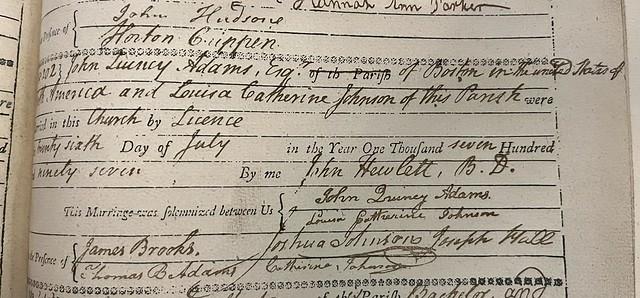 Hannah Ann Parker
Presence of { John Hudsone
Horton Crippen
John Quincy Adams, Esq. of the Parish of Boston in the united States of
America and Louisa Catherine Johnson of this Parish were
in this Church by Licence
sixth Day of July in the Year One Thousand seven Hundred
ninety seven By me John Hewlett, B.D.
This Marriage was solemnized between Us { John Quincy Adams.
Louisa Catherine Johnson
Presence of { James Brooks. Joshua Johnson Joseph Hall
Thomas B Adams Catherine Johnson
of this Parish Bachelor, and